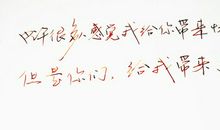 也许很多感觉我给你带来
但是你们，给我带来、